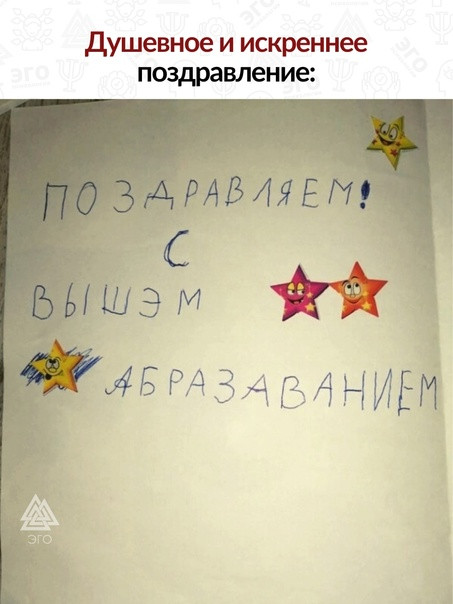 Душевное и искреннее
поздравление:
ПОЗДРАВЛЯЕМ!
С
ВЫШЭМ
АБРАЗАВАНИЕМ
ЭГО